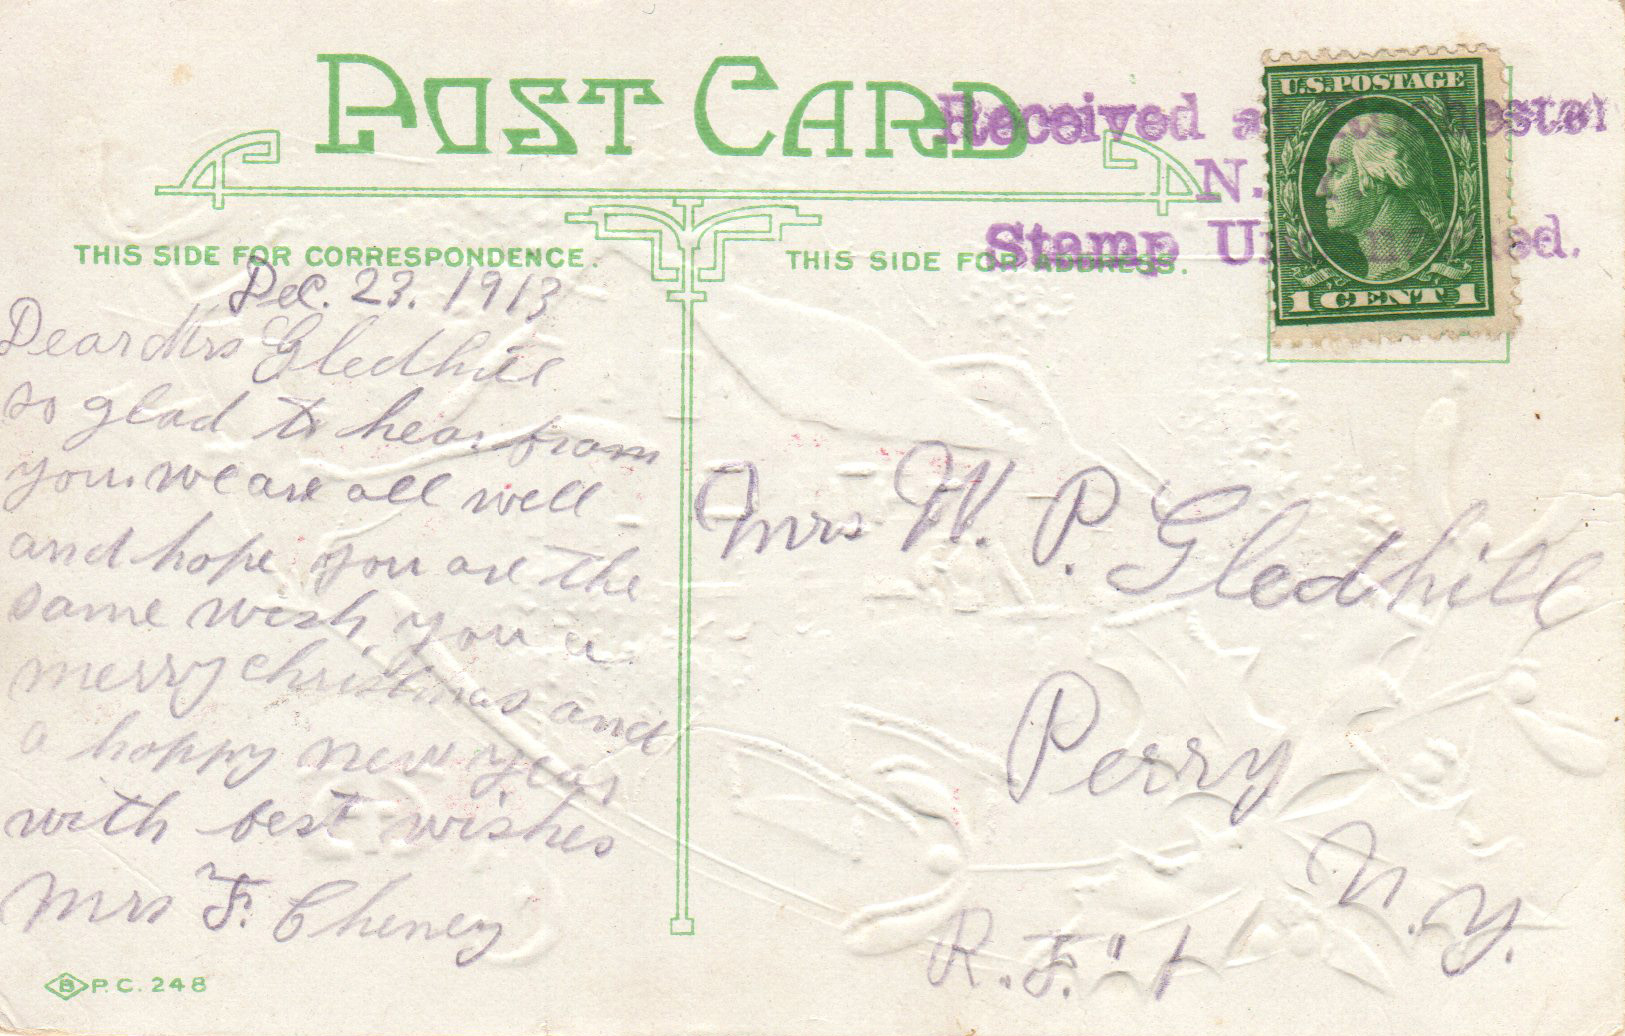 POST CARD
Received
U.S. POSTAGE
N.
Stamp
1 CENT 1
THIS SIDE FOR CORRESPONDENCE.
THIS SIDE FOR ADDRESS.
Dec. 23. 1913
Dear Mrs Gledhill
so glad to hear from
you. we are all well
and hope you are the
same wish you a
merry christmas and
a happy new year
with best wishes
Mrs F. Cheney
Mrs W. P. Gledhill
Perry
N. Y.
R. F. " 1
B P.C. 248